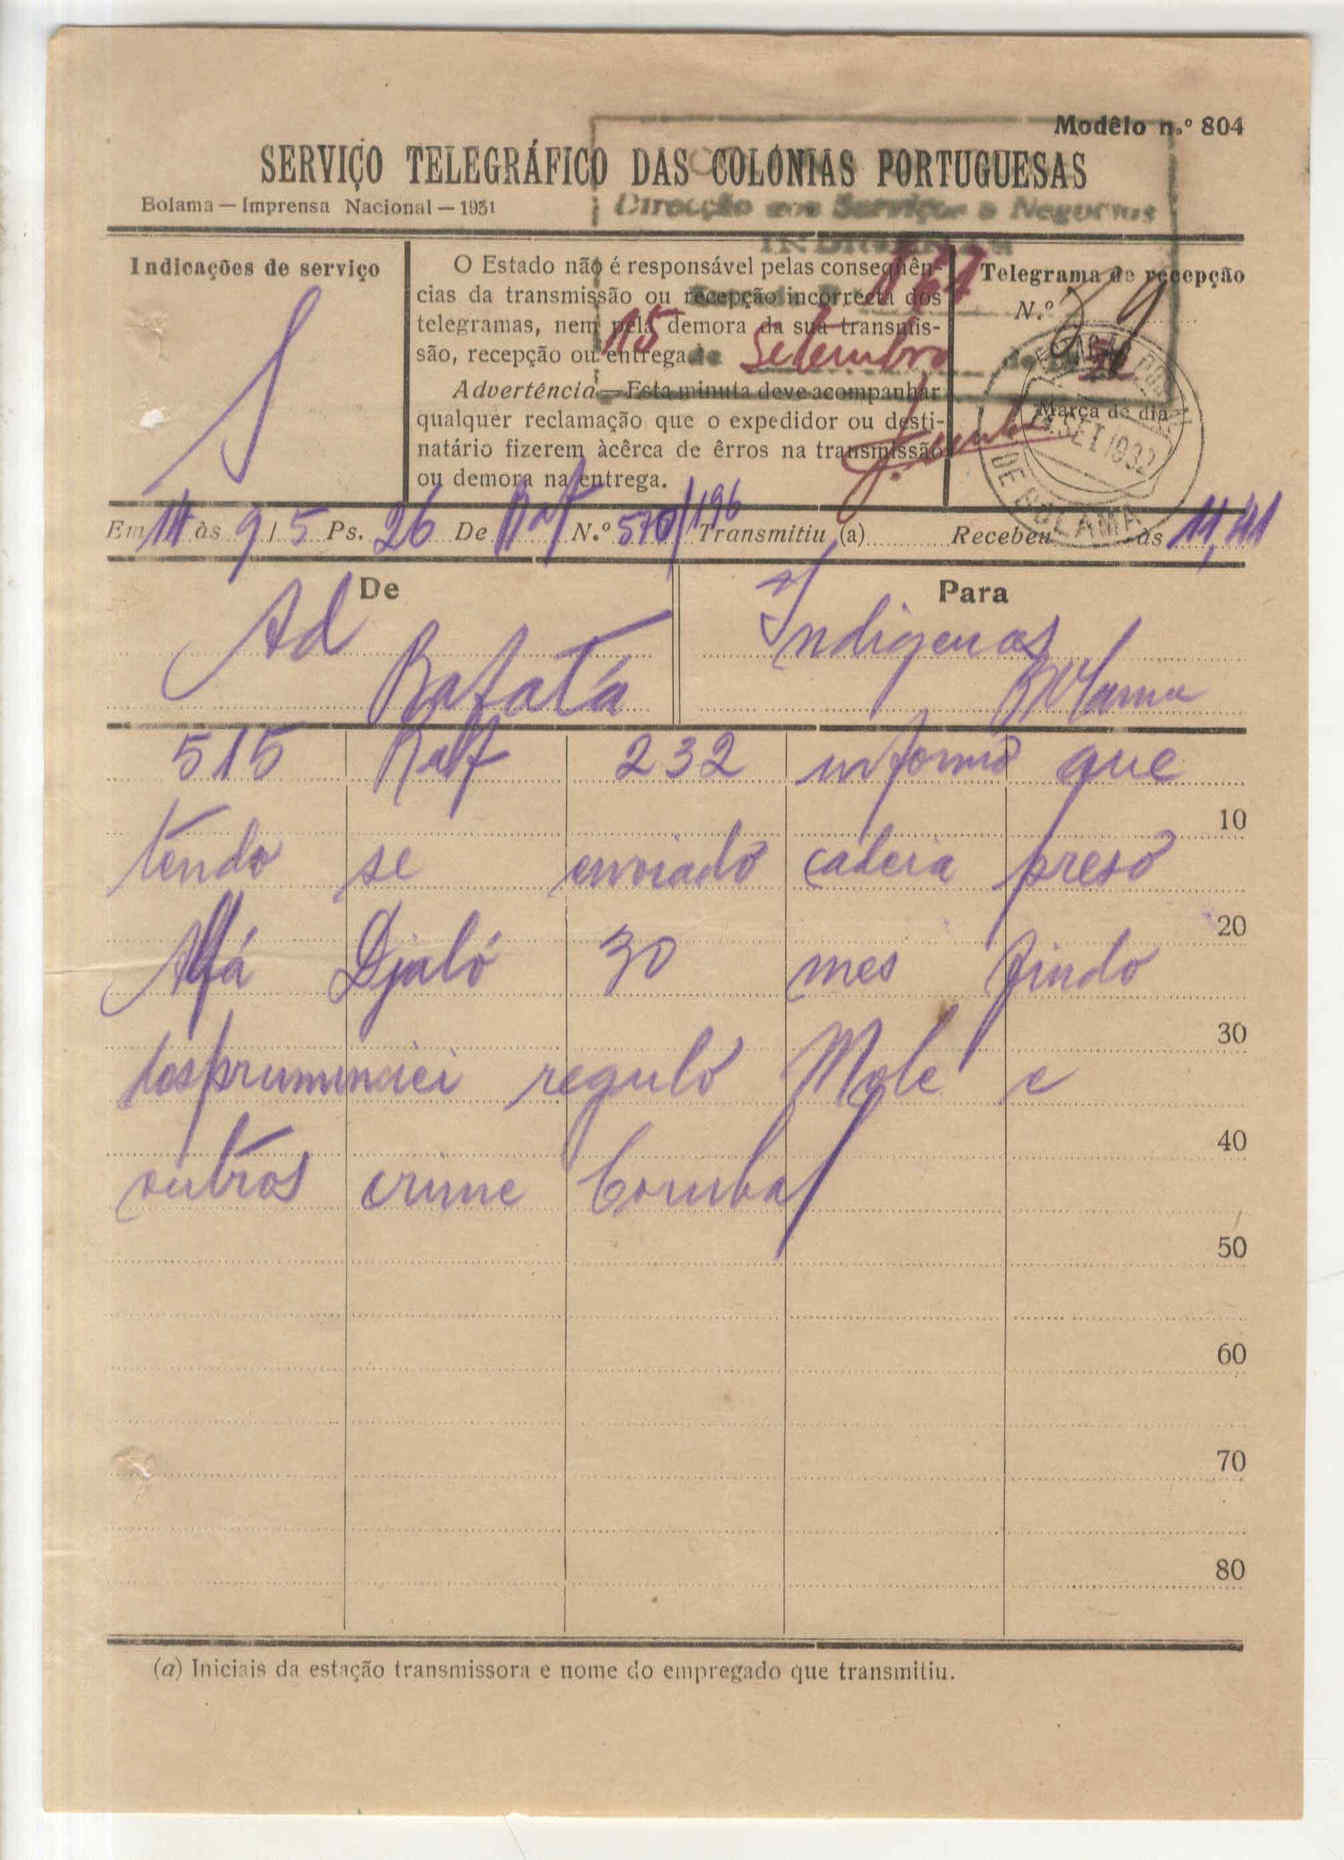 Modêlo n.º 804
SERVIÇO TELEGRÁFICO DAS COLÓNIAS PORTUGUESAS
Bolama — Imprensa Nacional — 1931
Direcção dos Serviços e Negocios
INDIGENAS
Indicações de serviço
S
O Estado não é responsável pelas conseqüên-
cias da transmissão ou recepção incorrecta dos
telegramas, nem pela demora da sua transmis-
são, recepção ou entrega.
Advertência — Esta minuta deve acompanhar
qualquer reclamação que o expedidor ou desti-
natário fizerem àcêrca de êrros na transmissão
ou demora na entrega.
15 de Setembro de 32
Telegrama de recepção
N.º 39
Marca de dia
SET 1932
DE BOLAMA
Em 14 às 9/5 Ps. 26 De Baf N.º 570/196 Transmitiu (a) Recebeu às 11,41
De
Ad
Bafatá
Para
Indigenas
Bolama
515 Baf 232 informo que
10
tendo se enviado cadeia preso
20
Alfá Djaló 30 mes findo
30
regulo Mole e
40
outros crime Corubal
50
60
70
80
(a) Iniciais da estação transmissora e nome do empregado que transmitiu.